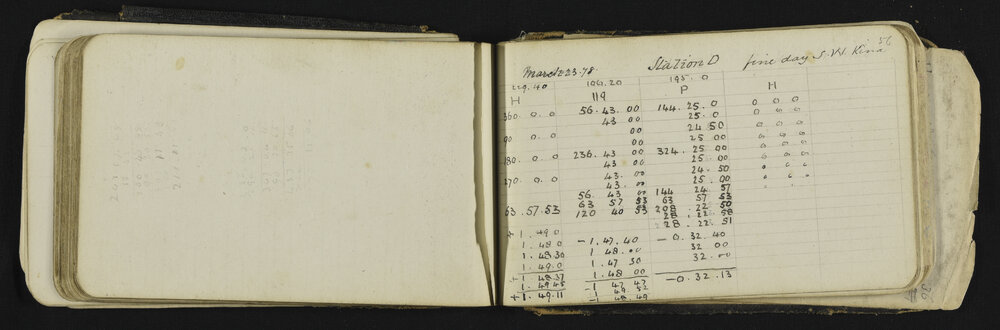 56
March 23.78 Station D fine day S.W. Kina
119.40 106.20 195.0
H 119 P H
360. 0. 0 56. 43. 00 144. 25. 0 0 0 0
43 00 25. 0 0 0 0
90 0. 0 00 24 50 0 0 0
00 25 00 0 0 0
180. 0. 0 236. 43 00 324. 25 00 0 0 0
43 00 25. 00 0 0 0
270. 0. 0 43. 00 24. 50
43. 00 25. 00
56. 43 00 144 24. 57
63 57 53 63 57 53
63. 57. 53 120 40 53 208. 22. 50
28. 22. 58
28. 22. 51
+ 1. 49 0
1. 48 0 -1. 47. 40 -0. 32. 40
1. 48. 30 1 48. 00 32 00
1. 49. 0 1. 47 30 32. 00
+1 48 37 1. 48 00 -0. 32. 13
1. 49 45 -1 47 47
+1. 49. 11 -1 48. 49